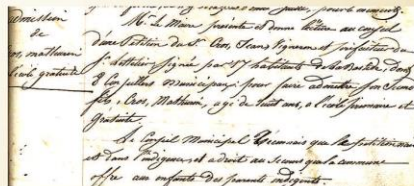 admission
de
Cros, mathurin
l'école gratuite
M. le Maire présente et donne lecture au conseil
d'une Pétition du Sr Cros, Jean, Vigneron et
Sr signée par 57 habitants de dont
8 Conseillers municipaux, pour faire admettre son jeune
fils, Cros, Mathurin, agé de huit ans, à l'école primaire et
gratuite.
Le Conseil Municipal Reconnait que le pétitionnaire
est dans l'indigence, et a droit au Secours que la commune
offre aux enfants des parents indigents.